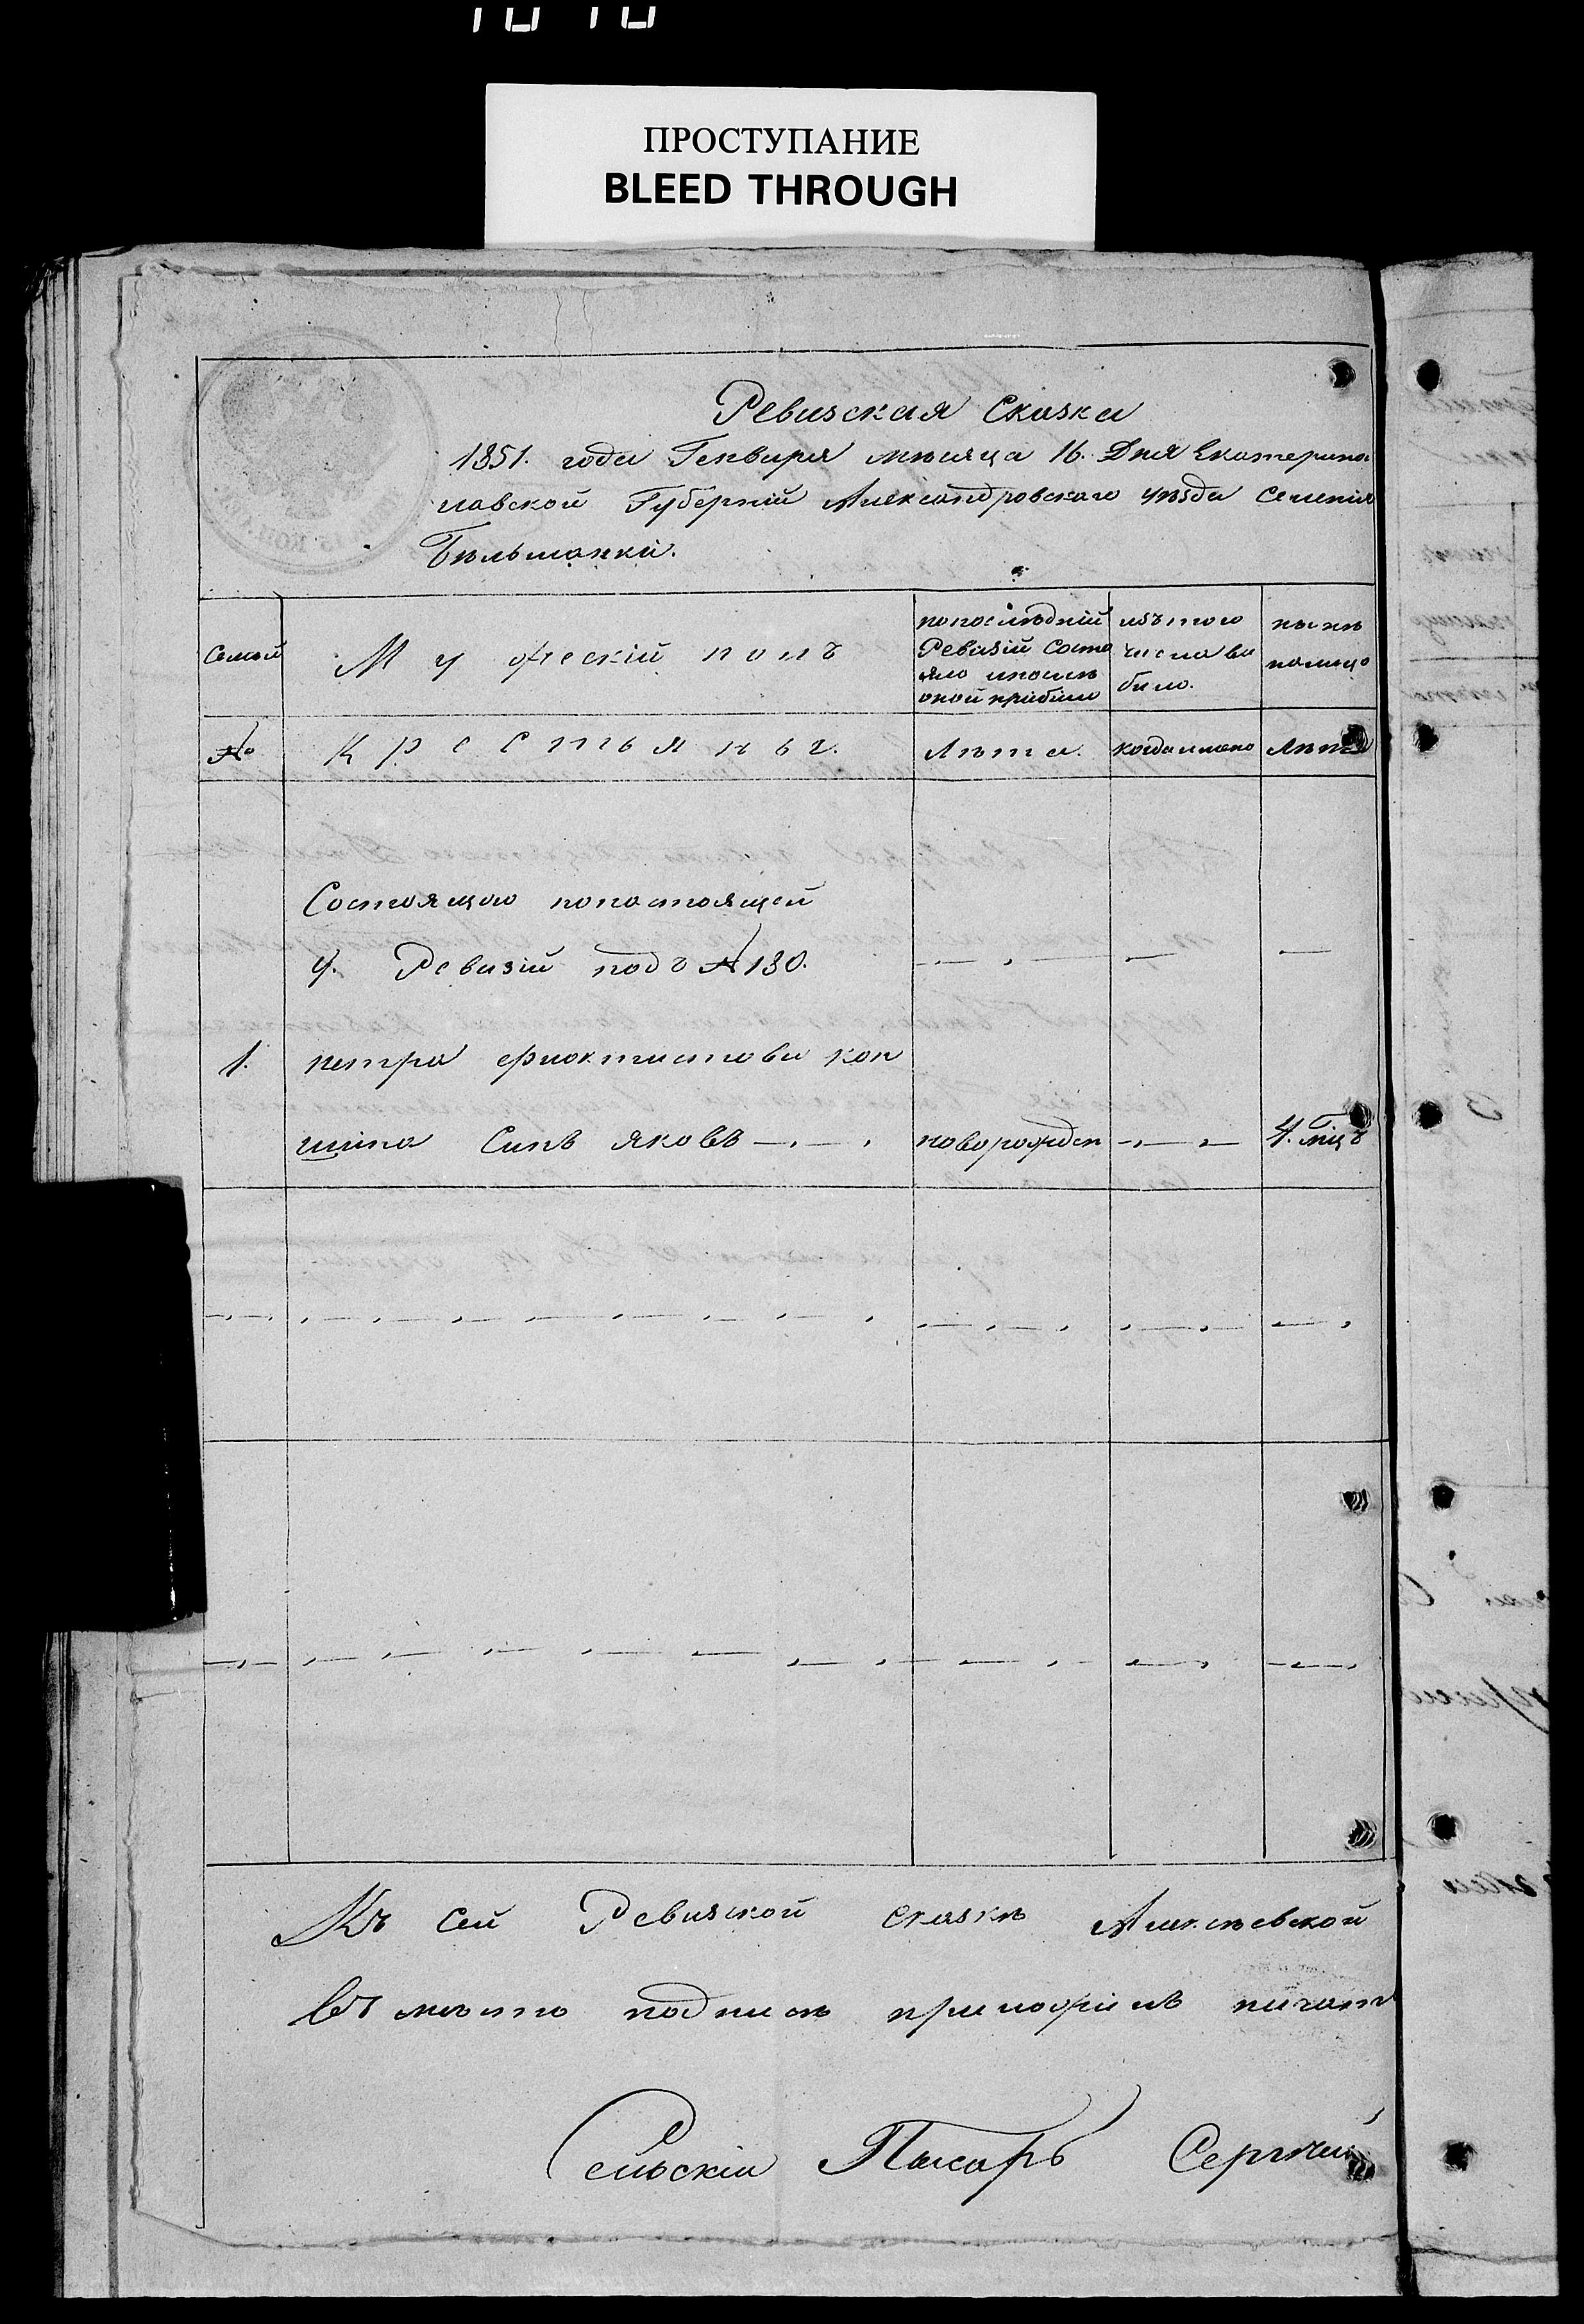 ПРОСТУПАНИЕ
BLEED THROUGH
Ревизская Сказка
1851. года Генваря мѣсяца 16. Дня Екатерино
славской Губерніи Александровского уѣзда Селенія
Бѣльманки.
Семьи
Мужескій полъ
попоследній
Ревизій Состо
яло ипослѣ
оной прибыло
изъ того
числа вы
было.
нынѣ
налицо
№
Крестьянъ.
Лѣта.
когда имено
Лѣта
Состоящаго понастоящей
9. Ревизіи подъ № 130.
1.
петра фиоктистова кон
шина Синъ яковъ
новорожден
4. мцъ
Къ Сей Ревизской сказкѣ Алексѣевской
Въ место подписи приложилъ печать
Сельскій Писарь Сергѣй